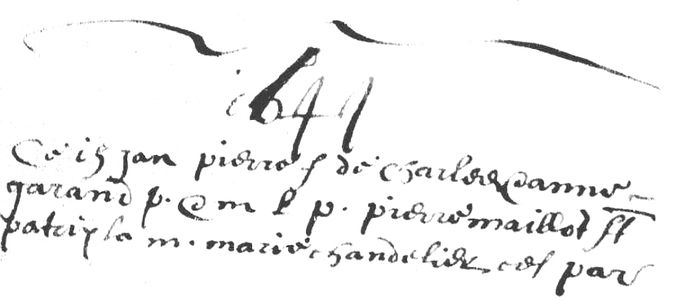 1649
Ce 15 Jan pierre f de charles & anne
garand p. & m l p. pierre maillot st
patris la m. marie chandelier ces par